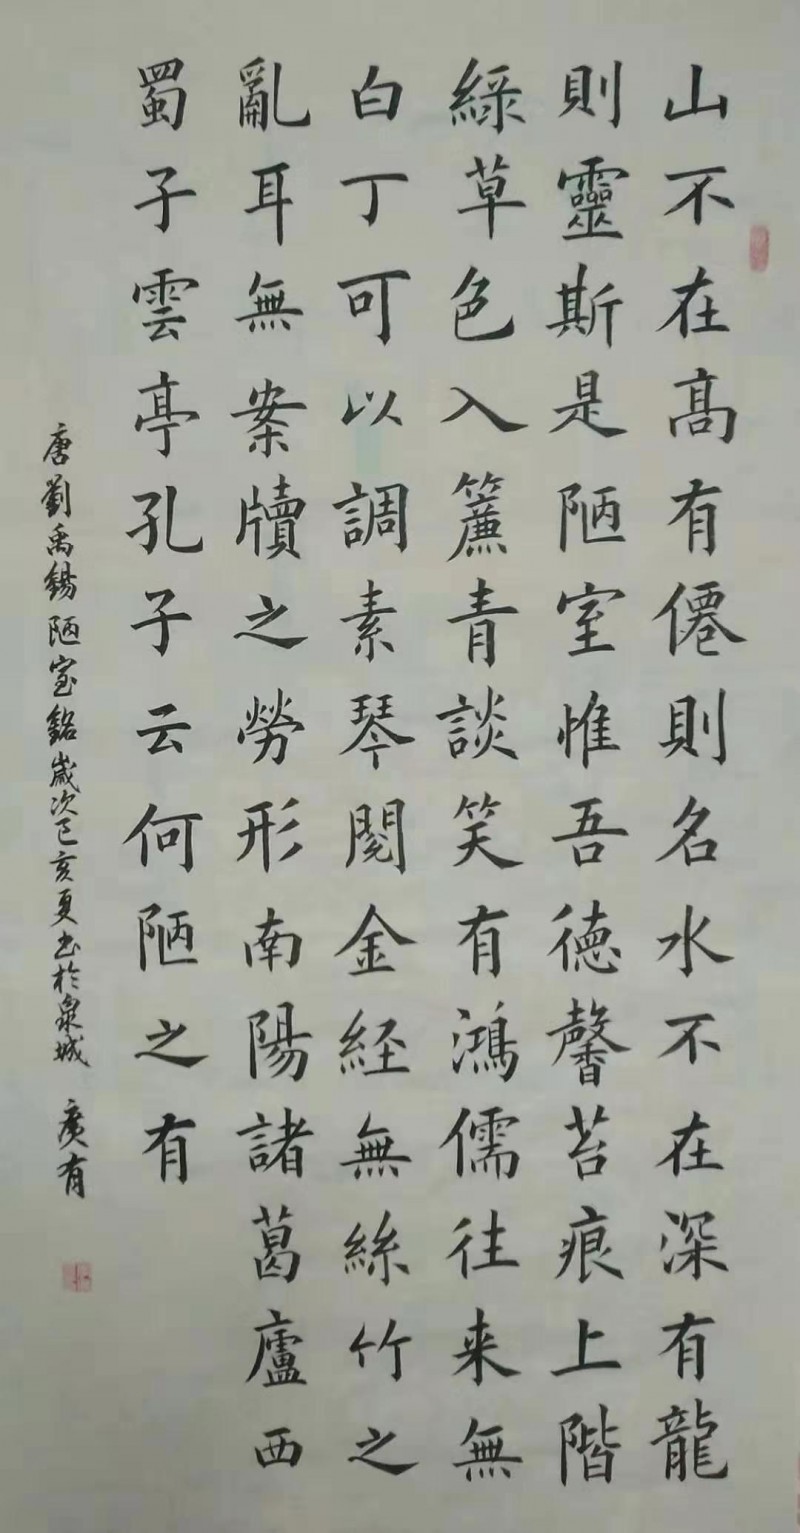 山不在髙有僊則名水不在深有龍
則靈斯是陋室惟吾德馨苔痕上階
綠草色入簾青談笑有鴻儒往来無
白丁可以調素琴閱金経無絲竹之
亂耳無案牘之勞形南陽諸葛廬西
蜀子雲亭孔子云何陋之有
唐劉禹錫陋室銘歲次己亥夏書於泉城 廣有